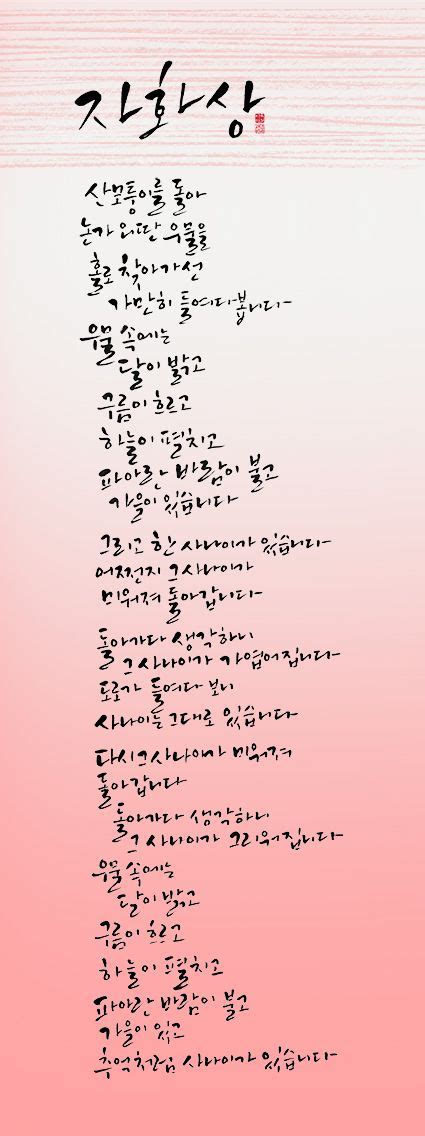 자화상
산모퉁이를 돌아
논가 외딴 우물을
홀로 찾아가선
가만히 들여다봅니다
우물 속에는
달이 밝고
구름이 흐르고
하늘이 펼치고
파아란 바람이 불고
가을이 있습니다
그리고 한 사나이가 있습니다
어쩐지 그 사나이가
미워져 돌아갑니다
돌아가다 생각하니
그 사나이가 가엽어집니다
도로가 들여다 보니
사나이는 그대로 있습니다
다시 그 사나이가 미워져
돌아갑니다
돌아가다 생각하니
그 사나이가 그리워집니다
우물 속에는
달이 밝고
구름이 흐르고
하늘이 펼치고
파아란 바람이 불고
가을이 있고
추억처럼 사나이가 있습니다